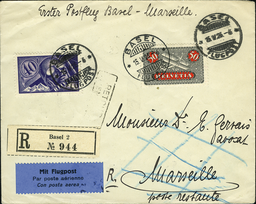 Erster Postflug Basel - Marseille.
BASEL
BASEL
BASEL
40
50
HELVETIA
LUFTPOST
R
Basel 2
№ 944
Monsieur Dr. E. Gervais
avocat
Mit Flugpost
Par poste aérienne
Con posta aerea
R.
Marseille
poste restante